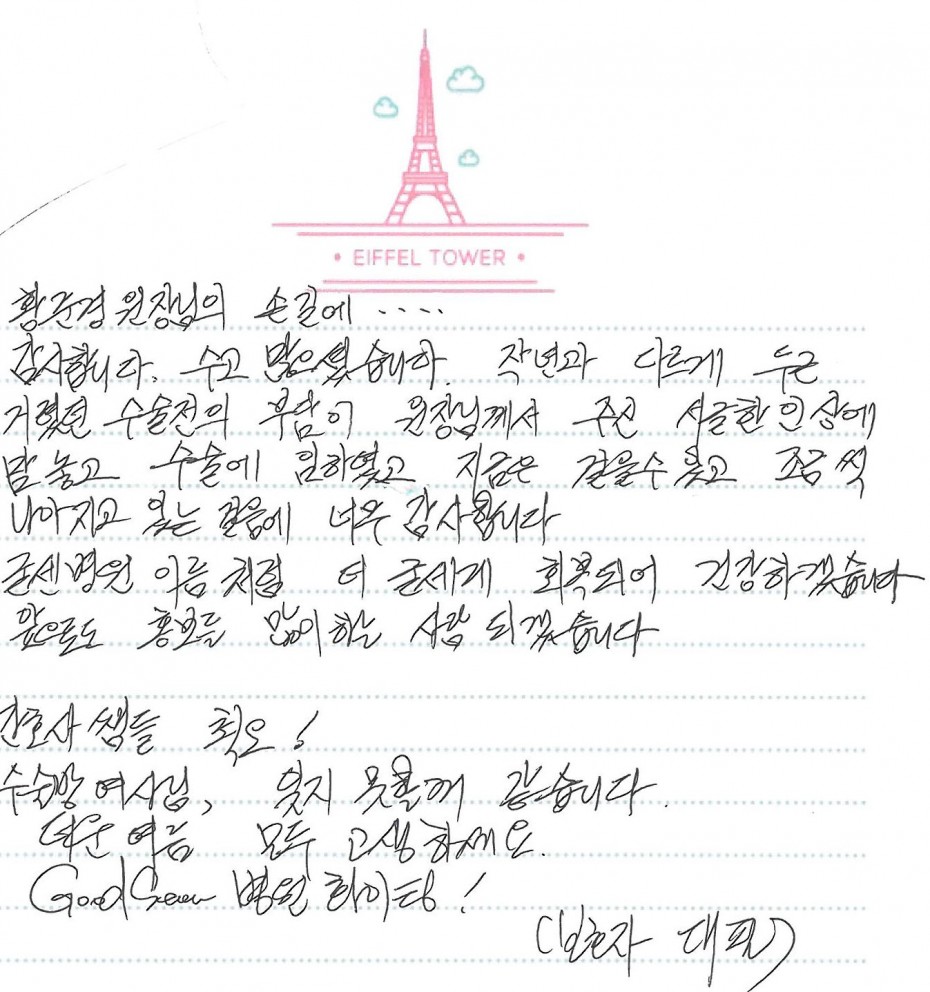 • EIFFEL TOWER •
황준경 원장님의 손길에 ....
감사합니다. 수고 많으셨습니다. 작년과 다르게 두근
거렸던 수술전의 부담이 원장님께서 주신 서글한 인상에
맘 놓고 수술에 임하였고 지금은 걸을수 있고 조금씩
나아지고 있는 걸음에 너무 감사합니다
굳센병원 이름처럼 더 굳세게 회복되어 건강하겠습니다
앞으로도 홍보를 많이하는 사람 되겠습니다
간호사 쌤들 최고!
수술방 여사님, 잊지 못할꺼 같습니다.
더운 여름 모두 고생하세요.
Good Seen 병원 화이팅!
(보호자 대필)